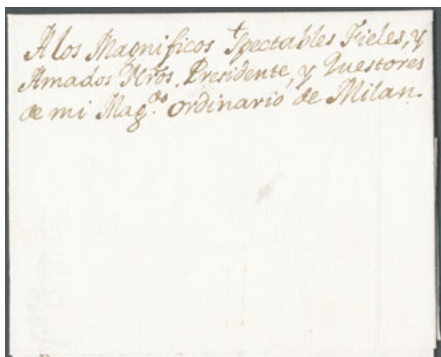 A los Magnificos Spectables Fieles, y
Amados Nr̃os. Presidente, y Questores
de mi Mag.do ordinario de Milan.